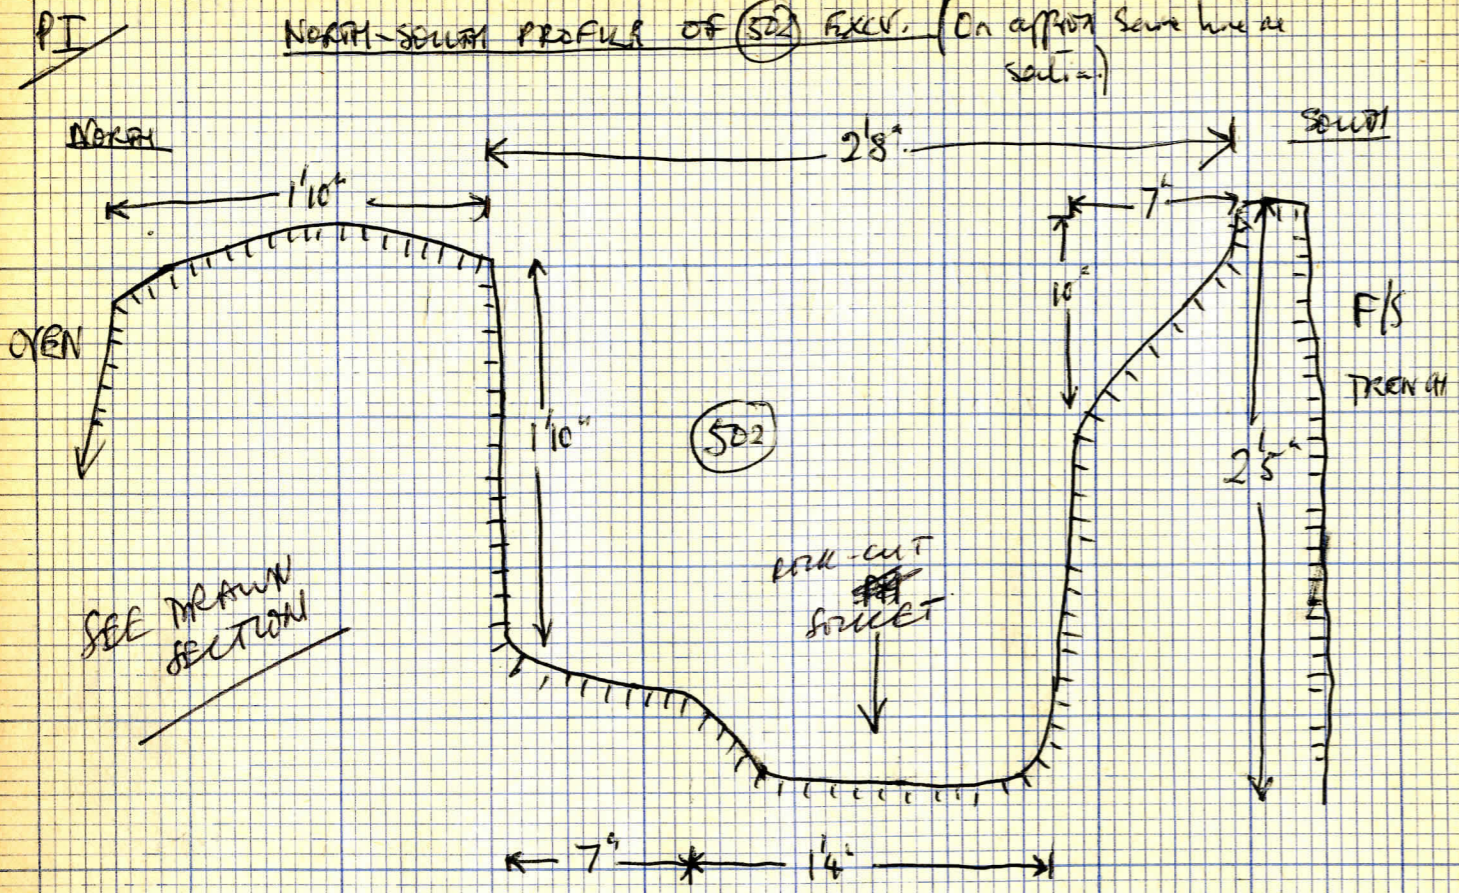 PI
NORTH-SOUTH PROFILE OF 502 EXCV. (On approx same line as
section)
NORTH
SOUTH
2'8"
1'10"
7"
10"
OVEN
F/S
TRENCH
1'10"
502
2'5"
ROCK-CUT
SOCKET
SEE DRAWN
SECTION
7"
1'4"